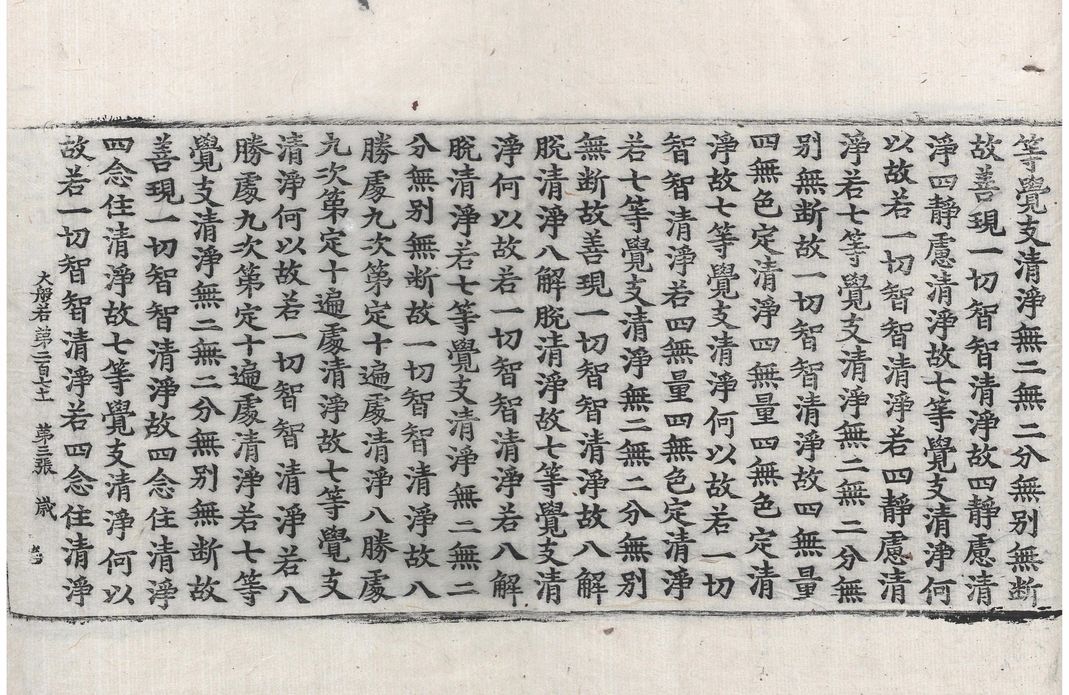 等覺支清淨無二無二分無別無断
故善現一切智智清淨故四静慮清
淨四静慮清淨故七等覺支清淨何
以故若一切智智清淨若四静慮清
淨若七等覺支清淨無二無二分無
別無断故一切智智清淨故四無量
四無色定清淨四無量四無色定清
淨故七等覺支清淨何以故若一切
智智清淨若四無量四無色定清淨
若七等覺支清淨無二無二分無別
無断故善現一切智智清淨故八解
脫清淨八解脫清淨故七等覺支清
淨何以故若一切智智清淨若八解
脫清淨若七等覺支清淨無二無二
分無別無断故一切智智清淨故八
勝處九次第定十遍處清淨八勝處
九次第定十遍處清淨故七等覺支
清淨何以故若一切智智清淨若八
勝處九次第定十遍處清淨若七等
覺支清淨無二無二分無別無断故
善現一切智智清淨故四念住清淨
四念住清淨故七等覺支清淨何以
故若一切智智清淨若四念住清淨
大般若第二百七十一 第三張 歲